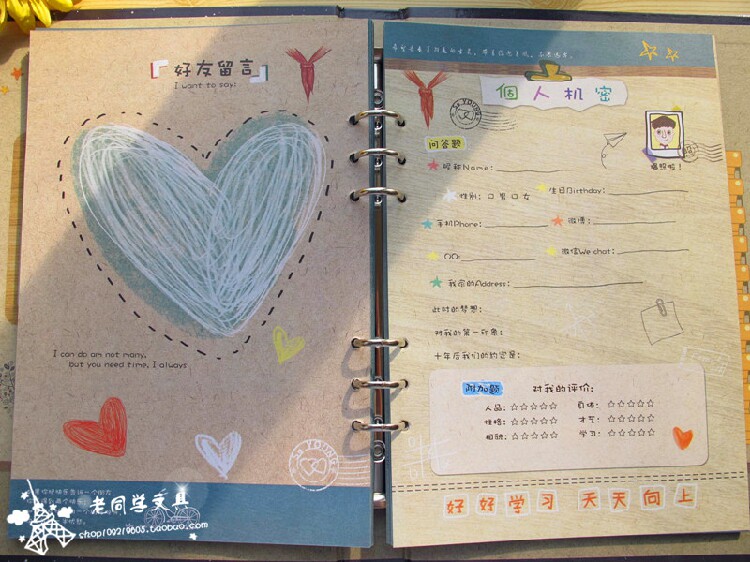 好友留言
I want to say:
I can do an not many,
but you need time, I always
老同学文具
shop109219603.taobao.com
個人机密
问答题
昵称Name:
性别: □男 □女
生日Birthday:
手机Phone:
微博:
QQ:
微信Wechat:
我的Address:
此时的梦想:
对我的第一印象:
十年后我们的约定是:
附加题
对我的评价:
人品: ☆☆☆☆☆
身材: ☆☆☆☆☆
性格: ☆☆☆☆☆
才气: ☆☆☆☆☆
相貌: ☆☆☆☆☆
学习: ☆☆☆☆☆
好好学习 天天向上